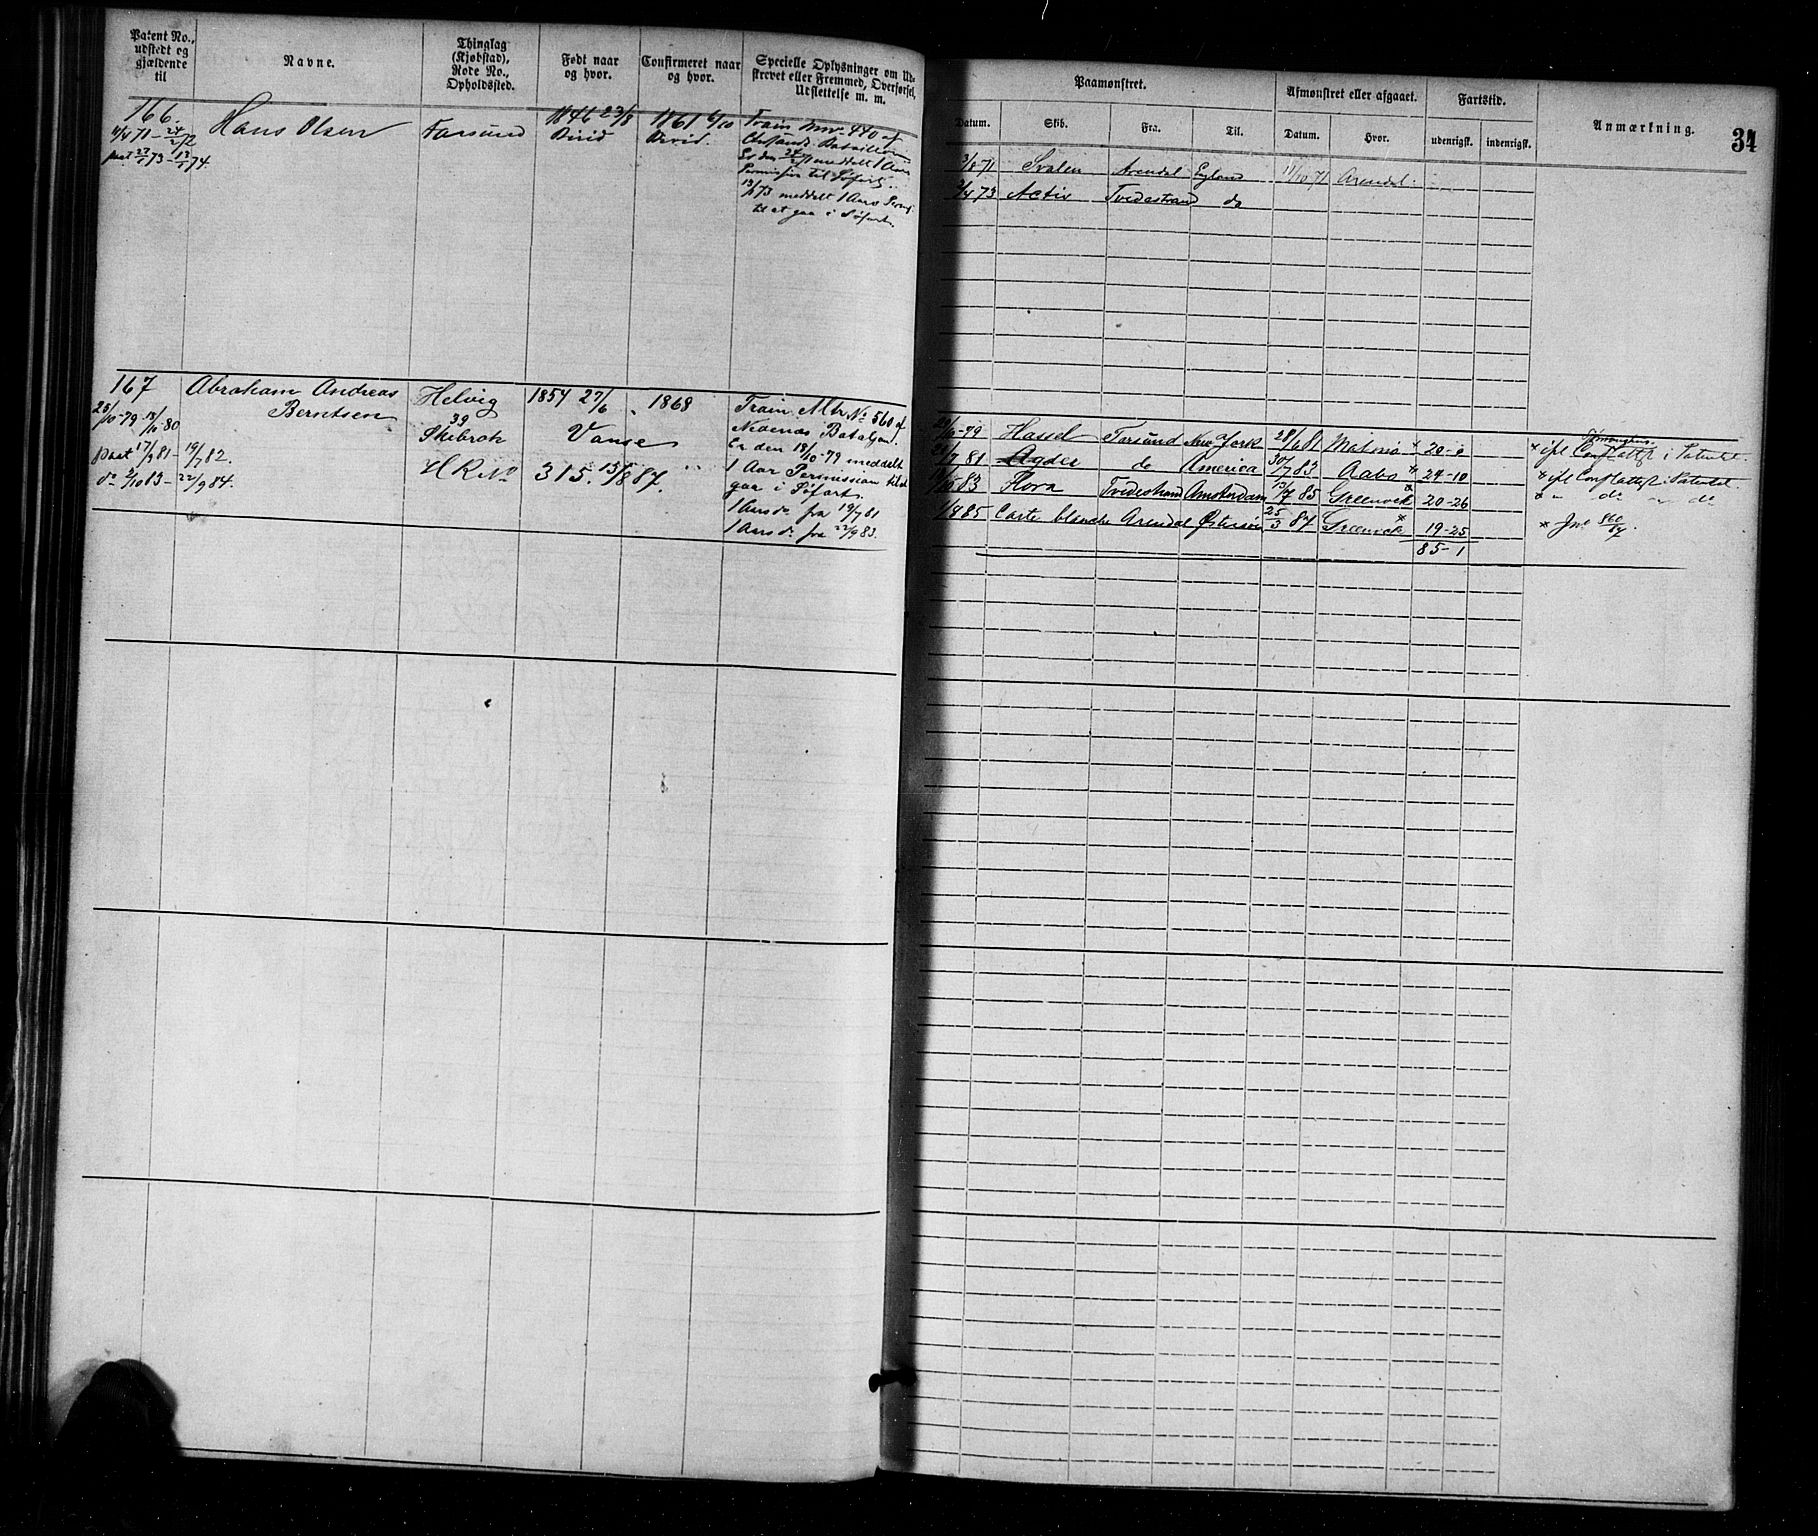 Patent No., udstedt og gjældende til
Navne.
Thinglag (Kjøbstad), Rode No., Opholdssted.
Født naar og hvor.
Confirmeret naar og hvor.
Specielle Oplysninger om Udskrevet eller Fremmed, Overførsel, Udslettelse m. m.
166.
11/4 71 - 24/2 72
Hans Olsen
Farsund
1846 23/8
Birid
1861 6/10
Birid.
Train Mnr. 440 af
Chrsands Bataillon
Er den 24/2 71 meddelt 1 Aars
Permission til Søfart.
meddelt 1 Aars Perm.
til at gaa i Søfart.
167
25/10-79 18/10-80
17/9 81 - 19/7 82.
do 2/10 83 - 22/9 84.
Abraham Andreas
Berntsen
Helvig
39
Skibrok
H R No 315. 15/8 87.
1854 27/6
Vanse
1868
"
Train Mtr No 560 af
Nedenæs Bataljon.
Er den 18/10-79 meddelt
1 Aar Permission til at
gaa i Søfart.
1 Aars do fra 19/7 81
1 Aars do fra 22/9 83.
Paamønstret.
Afmønstret eller afgaaet.
Fartstid.
Anmærkning.
34
Datum.
Skib.
Fra.
Til.
Datum.
Hvor.
udenrigsk.
indenrigsk.
3/8 71 Svalen Arendal England 11/10 71 Arendal.
2/4 73 Activ Tvedestrand do
Hassel Farsund New York 28/6 81 Malmø * 20-0
* ifl Conflattest i Patentet.
Agder do America 30/7 83 Aabo * 24-10
* ifl Conflattest i Patentet.
Flora Tvedestrand Amsterdam 13/7 85 Greenock * 20-26
* " do " do
1/8 85 Carte blanche Arendal Østersøen 25/3 87 Greenock * 19-25
* Jno 860/87.
85-1